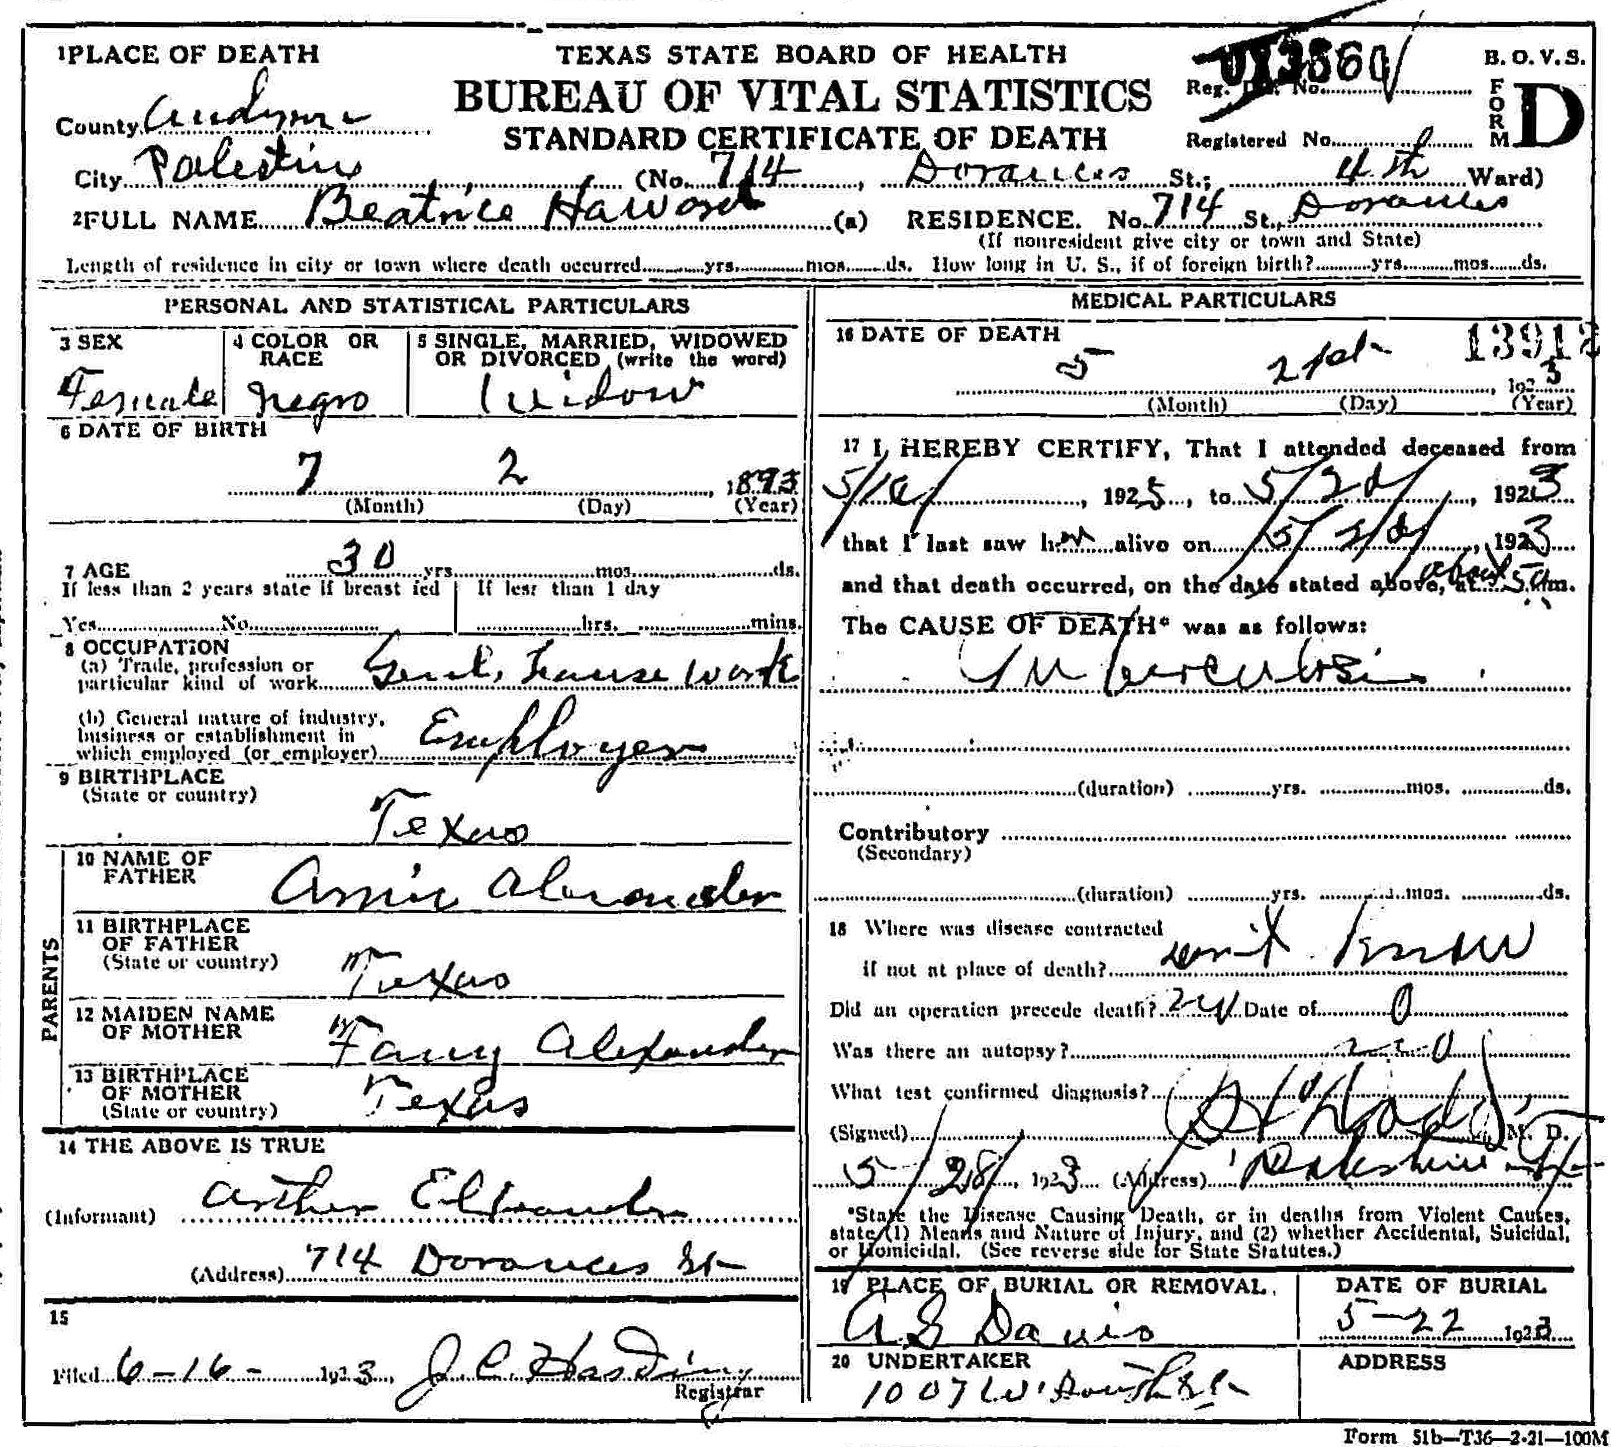 1 PLACE OF DEATH
TEXAS STATE BOARD OF HEALTH
B. O. V. S.
BUREAU OF VITAL STATISTICS
Reg. Dis. No.
FORM D
County
STANDARD CERTIFICATE OF DEATH
Registered No.
City Palestine (No. 714 Dorances St.; 4th Ward)
2 FULL NAME Beatrice Haword (a) RESIDENCE. No. 714 St., Dorances
(If nonresident give city or town and State)
Length of residence in city or town where death occurred yrs. mos. ds. How long in U. S., if of foreign birth? yrs. mos. ds.
PERSONAL AND STATISTICAL PARTICULARS
3 SEX
4 COLOR OR RACE
5 SINGLE, MARRIED, WIDOWED
OR DIVORCED (write the word)
Female negro Widow
6 DATE OF BIRTH
7 2 1893
(Month) (Day) (Year)
7 AGE 30 yrs. mos. ds.
If less than 2 years state if breast fed If less than 1 day
Yes No hrs. mins.
8 OCCUPATION
(a) Trade, profession or
particular kind of work Genl. House Work
(b) General nature of industry,
business or establishment in
which employed (or employer) Employer
9 BIRTHPLACE
(State or country)
Texas
PARENTS
10 NAME OF
FATHER Alexander
11 BIRTHPLACE
OF FATHER
(State or country) Texas
12 MAIDEN NAME
OF MOTHER Fany Alexander
13 BIRTHPLACE
OF MOTHER
(State or country) Texas
14 THE ABOVE IS TRUE
(Informant) Arther
(Address) 714 Dorances St
15
Filed 6-16- 1923, J. C. Harding
Registrar
MEDICAL PARTICULARS
16 DATE OF DEATH
13912
5 21st 1923
(Month) (Day) (Year)
17 I HEREBY CERTIFY, That I attended deceased from
5/10/, 1925, to 5/20/, 1923
that I last saw her alive on 5/20/, 1923
and that death occurred, on the date stated above, at about 5 a m.
The CAUSE OF DEATH* was as follows:
Tuberculosis
(duration) yrs. mos. ds.
Contributory
(Secondary)
(duration) yrs. mos. ds.
18 Where was disease contracted
if not at place of death? don't know
Did an operation precede death? no Date of 0
Was there an autopsy? no
What test confirmed diagnosis?
(Signed) M. D.
5/28/, 1923 (Address) Palestine Tx
*State the Disease Causing Death, or in deaths from Violent Causes,
state (1) Means and Nature of Injury, and (2) whether Accidental, Suicidal,
or Homicidal. (See reverse side for State Statutes.)
19 PLACE OF BURIAL OR REMOVAL
DATE OF BURIAL
A G Davis 5-22 1923
20 UNDERTAKER
ADDRESS
1007 W
Form 51b—T36—2-21—100M